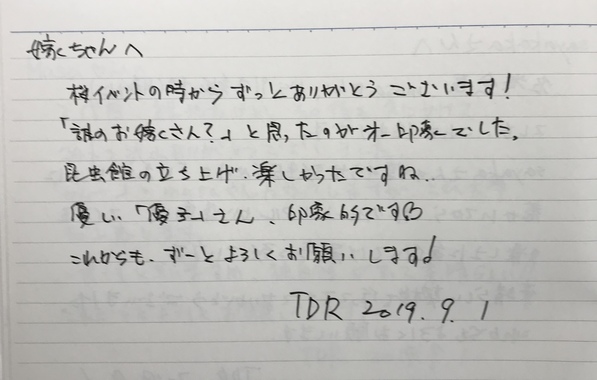 嫁ちゃんへ
桜イベントの時からずっとありがとうございます!
「誰のお嫁さん?」と思ったのが第一印象でした。
昆虫館の立ち上げ、楽しかったですね..
優しい「優子」さん、印象的です
これからも、ずーっとよろしくお願いします!
TDR 2019.9.1